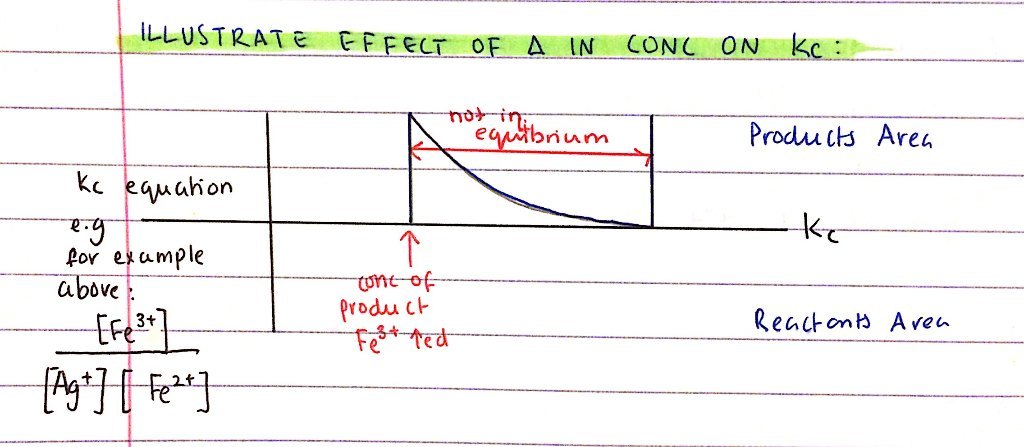 ILLUSTRATE EFFECT OF Δ IN CONC ON Kc :
not in
equilbrium
Products Area
Kc equation
e.g
for example
above :
[Fe³⁺]
[Ag⁺] [ Fe²⁺]
Kc
conc of
product
Fe³⁺ ↑ed
Reactants Area